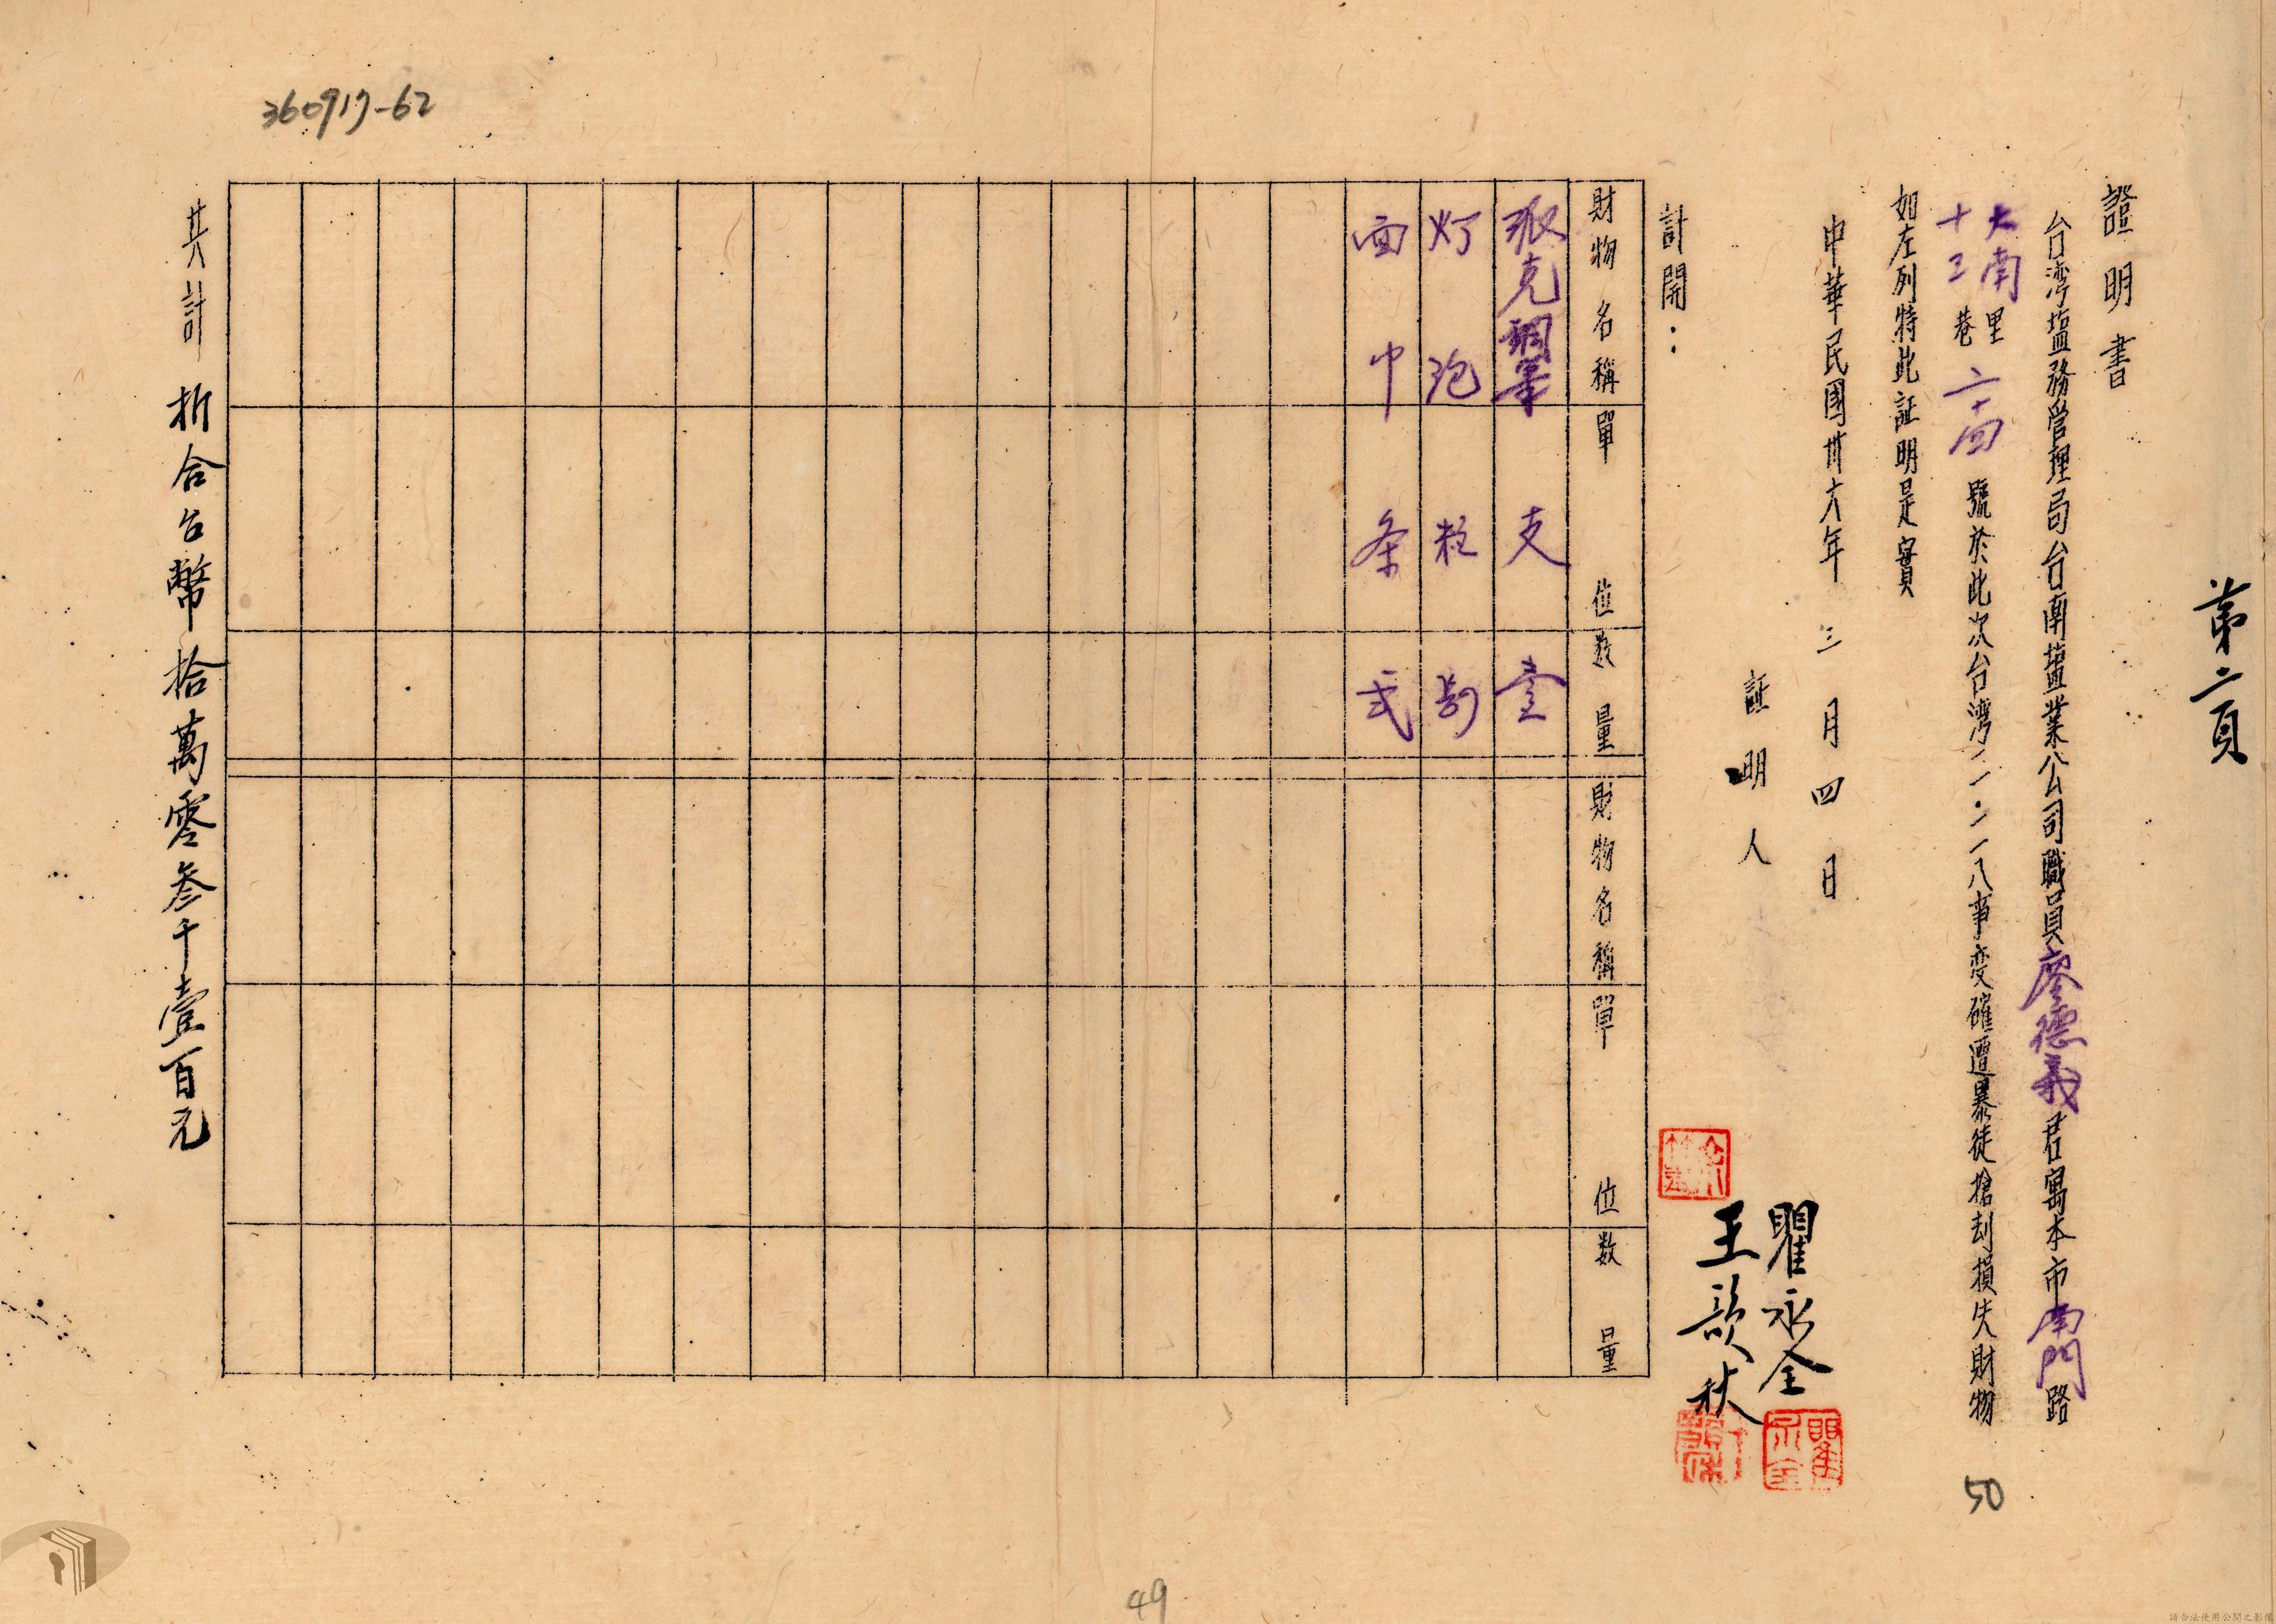 第二頁
證明書
台湾塩務管理局台南塩業公司職員廖德義君寓本市南門路
大南里
十三巷二十四號於此次台湾二・二八事变確遭暴徒搶刦損失財物
如左列特此証明是實
中華民國卅六年三月四日
証明人
瞿永全
王韻秋
計開：
財物名稱 單位 数量 財物名稱 單位 数量
派克鋼筆 支 壹
灯泡 粒
面巾 条 弍
共計 折合台幣拾萬零叁千壹百元
360917-62
50
49
請合法使用公開之影像